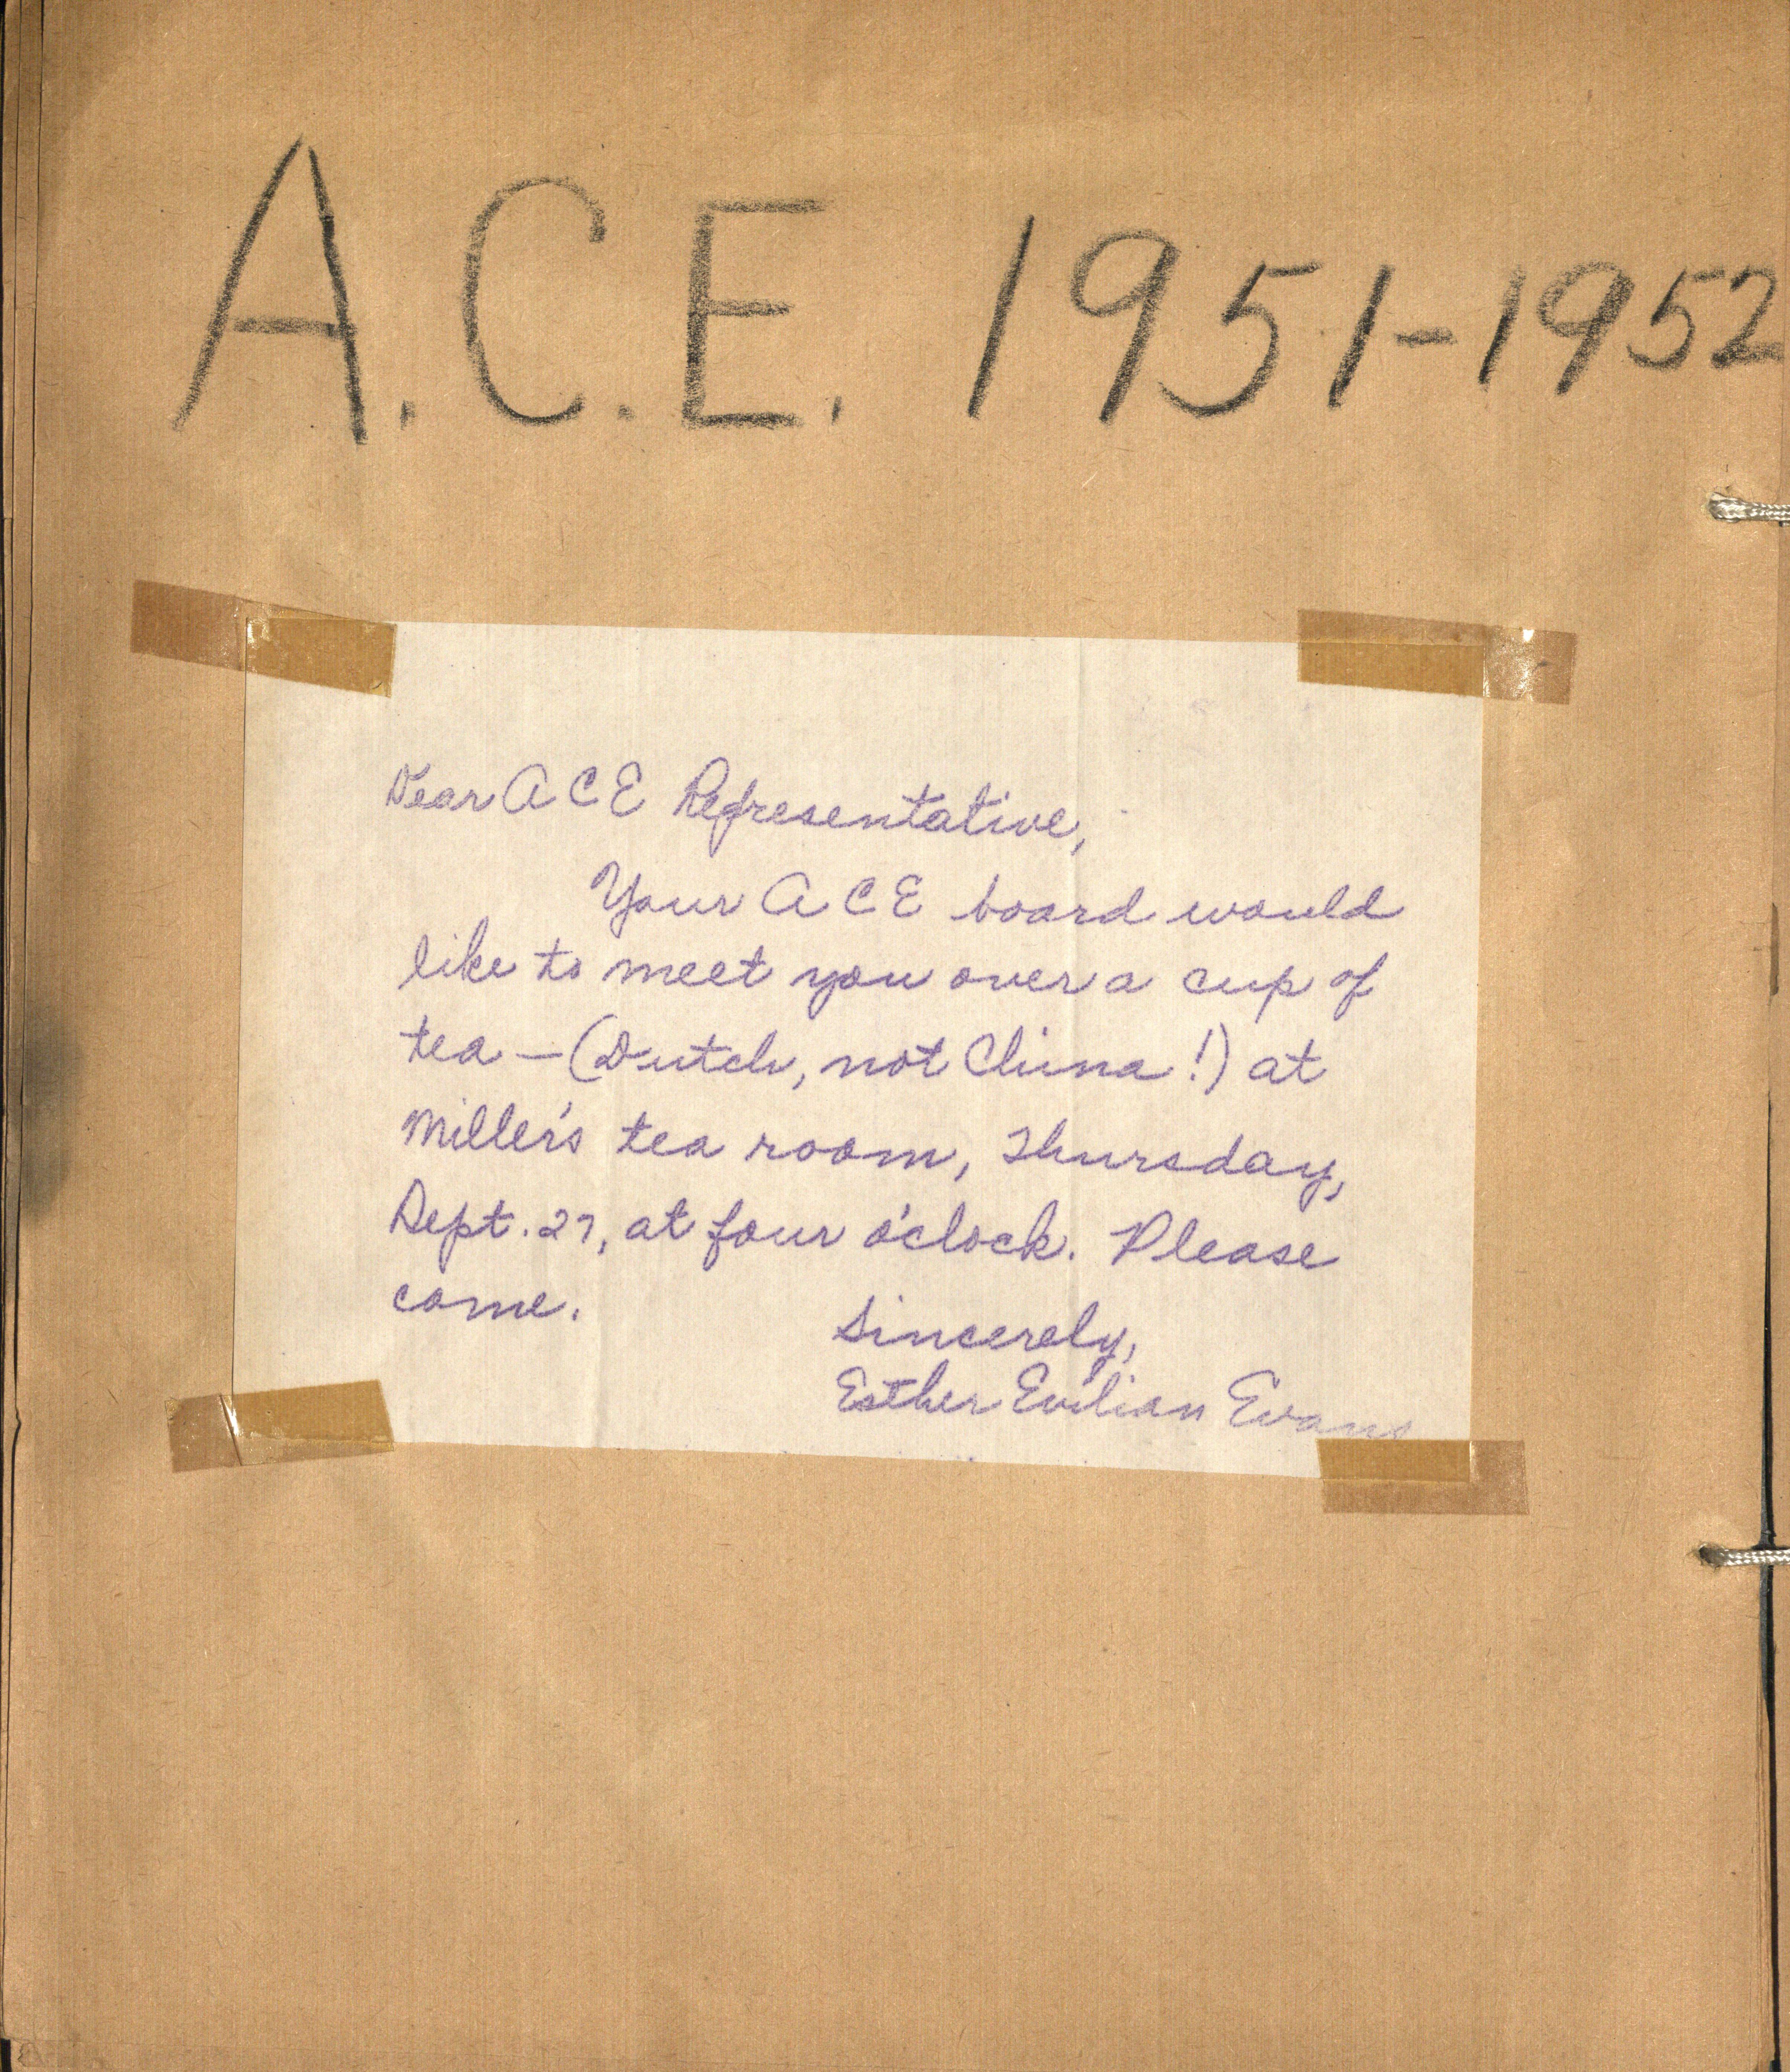 A.C.E. 1951-1952
Dear A C E Representative,
Your A C E board would
like to meet you over a cup of
tea — (Dutch, not China!) at
Miller's tea room, Thursday,
Sept. 27, at four o'clock. Please
come.
Sincerely,
Esther Evilian Evans